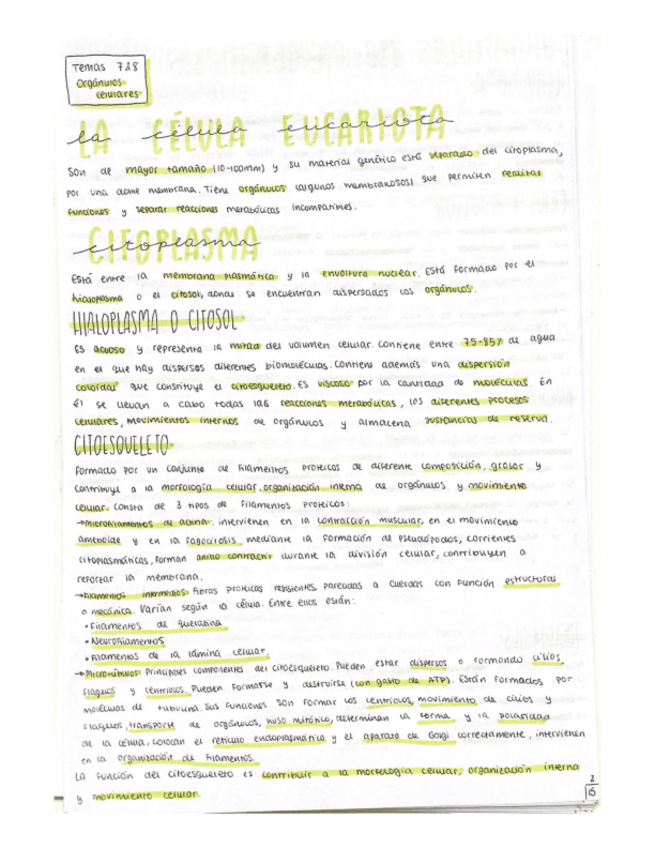 Temas 7&8
orgánulos
celulares
la CÉLULA EUCARIOTA
Son de mayor tamaño (10-100mm) y su material genético está separado del citoplasma,
por una doble membrana. Tiene orgánulos (algunos membranosos) que permiten realizar
funciones y separar reacciones metabólicas incompatibles.
CITOPLASMA
citoplasma
Está entre la membrana plasmática y la envoltura nuclear. Está formado por el
hialoplasma o el citosol, donde se encuentran dispersados los orgánulos.
HIALOPLASMA O CITOSOL
Es acuoso y representa la mitad del volumen celular. Contiene entre 75-85% de agua
en el que hay dispersas diferentes biomoléculas. Contiene además una dispersión
coloidal que constituye el citoesqueleto. Es viscoso por la cantidad de moléculas. En
él se llevan a cabo todas las reacciones metabólicas, los diferentes procesos
celulares, movimientos internos de orgánulos y almacena sustancias de reserva.
CITOESQUELETO
Formado por un conjunto de filamentos proteicos de diferente composición, grosor y
contribuye a la morfología celular, organización interna de orgánulos y movimiento
celular. Consta de 3 tipos de filamentos proteicos:
→Microfilamentos de actina: intervienen en la contracción muscular, en el movimiento
ameboide y en la fagocitosis mediante la formación de pseudópodos, corrientes
citoplasmáticas, forman anillo contráctil durante la división celular, contribuyen a
reforzar la membrana.
→Filamentos intermedios: fibras proteicas resistentes parecidas a cuerdas con función estructural
o mecánica. Varían según la célula. Entre ellos están:
• Filamentos de queratina
• Neurofilamentos
• Filamentos de la lámina celular.
→Microtúbulos: Principales componentes del citoesqueleto. Pueden estar dispersos o formando cilios,
flagelos y centriolos. Pueden formarse y destruirse (con gasto de ATP). Están formados por
moléculas de tubulina. Sus funciones son formar los centriolos, movimiento de cilios y
flagelos, transporte de orgánulos, huso mitótico, determinan la forma y la polaridad
de la célula, colocan el retículo endoplasmático y el aparato de Golgi correctamente, intervienen
en la organización de filamentos.
La función del citoesqueleto es contribuir a la morfología celular, organización interna
y movimiento celular.
2
15